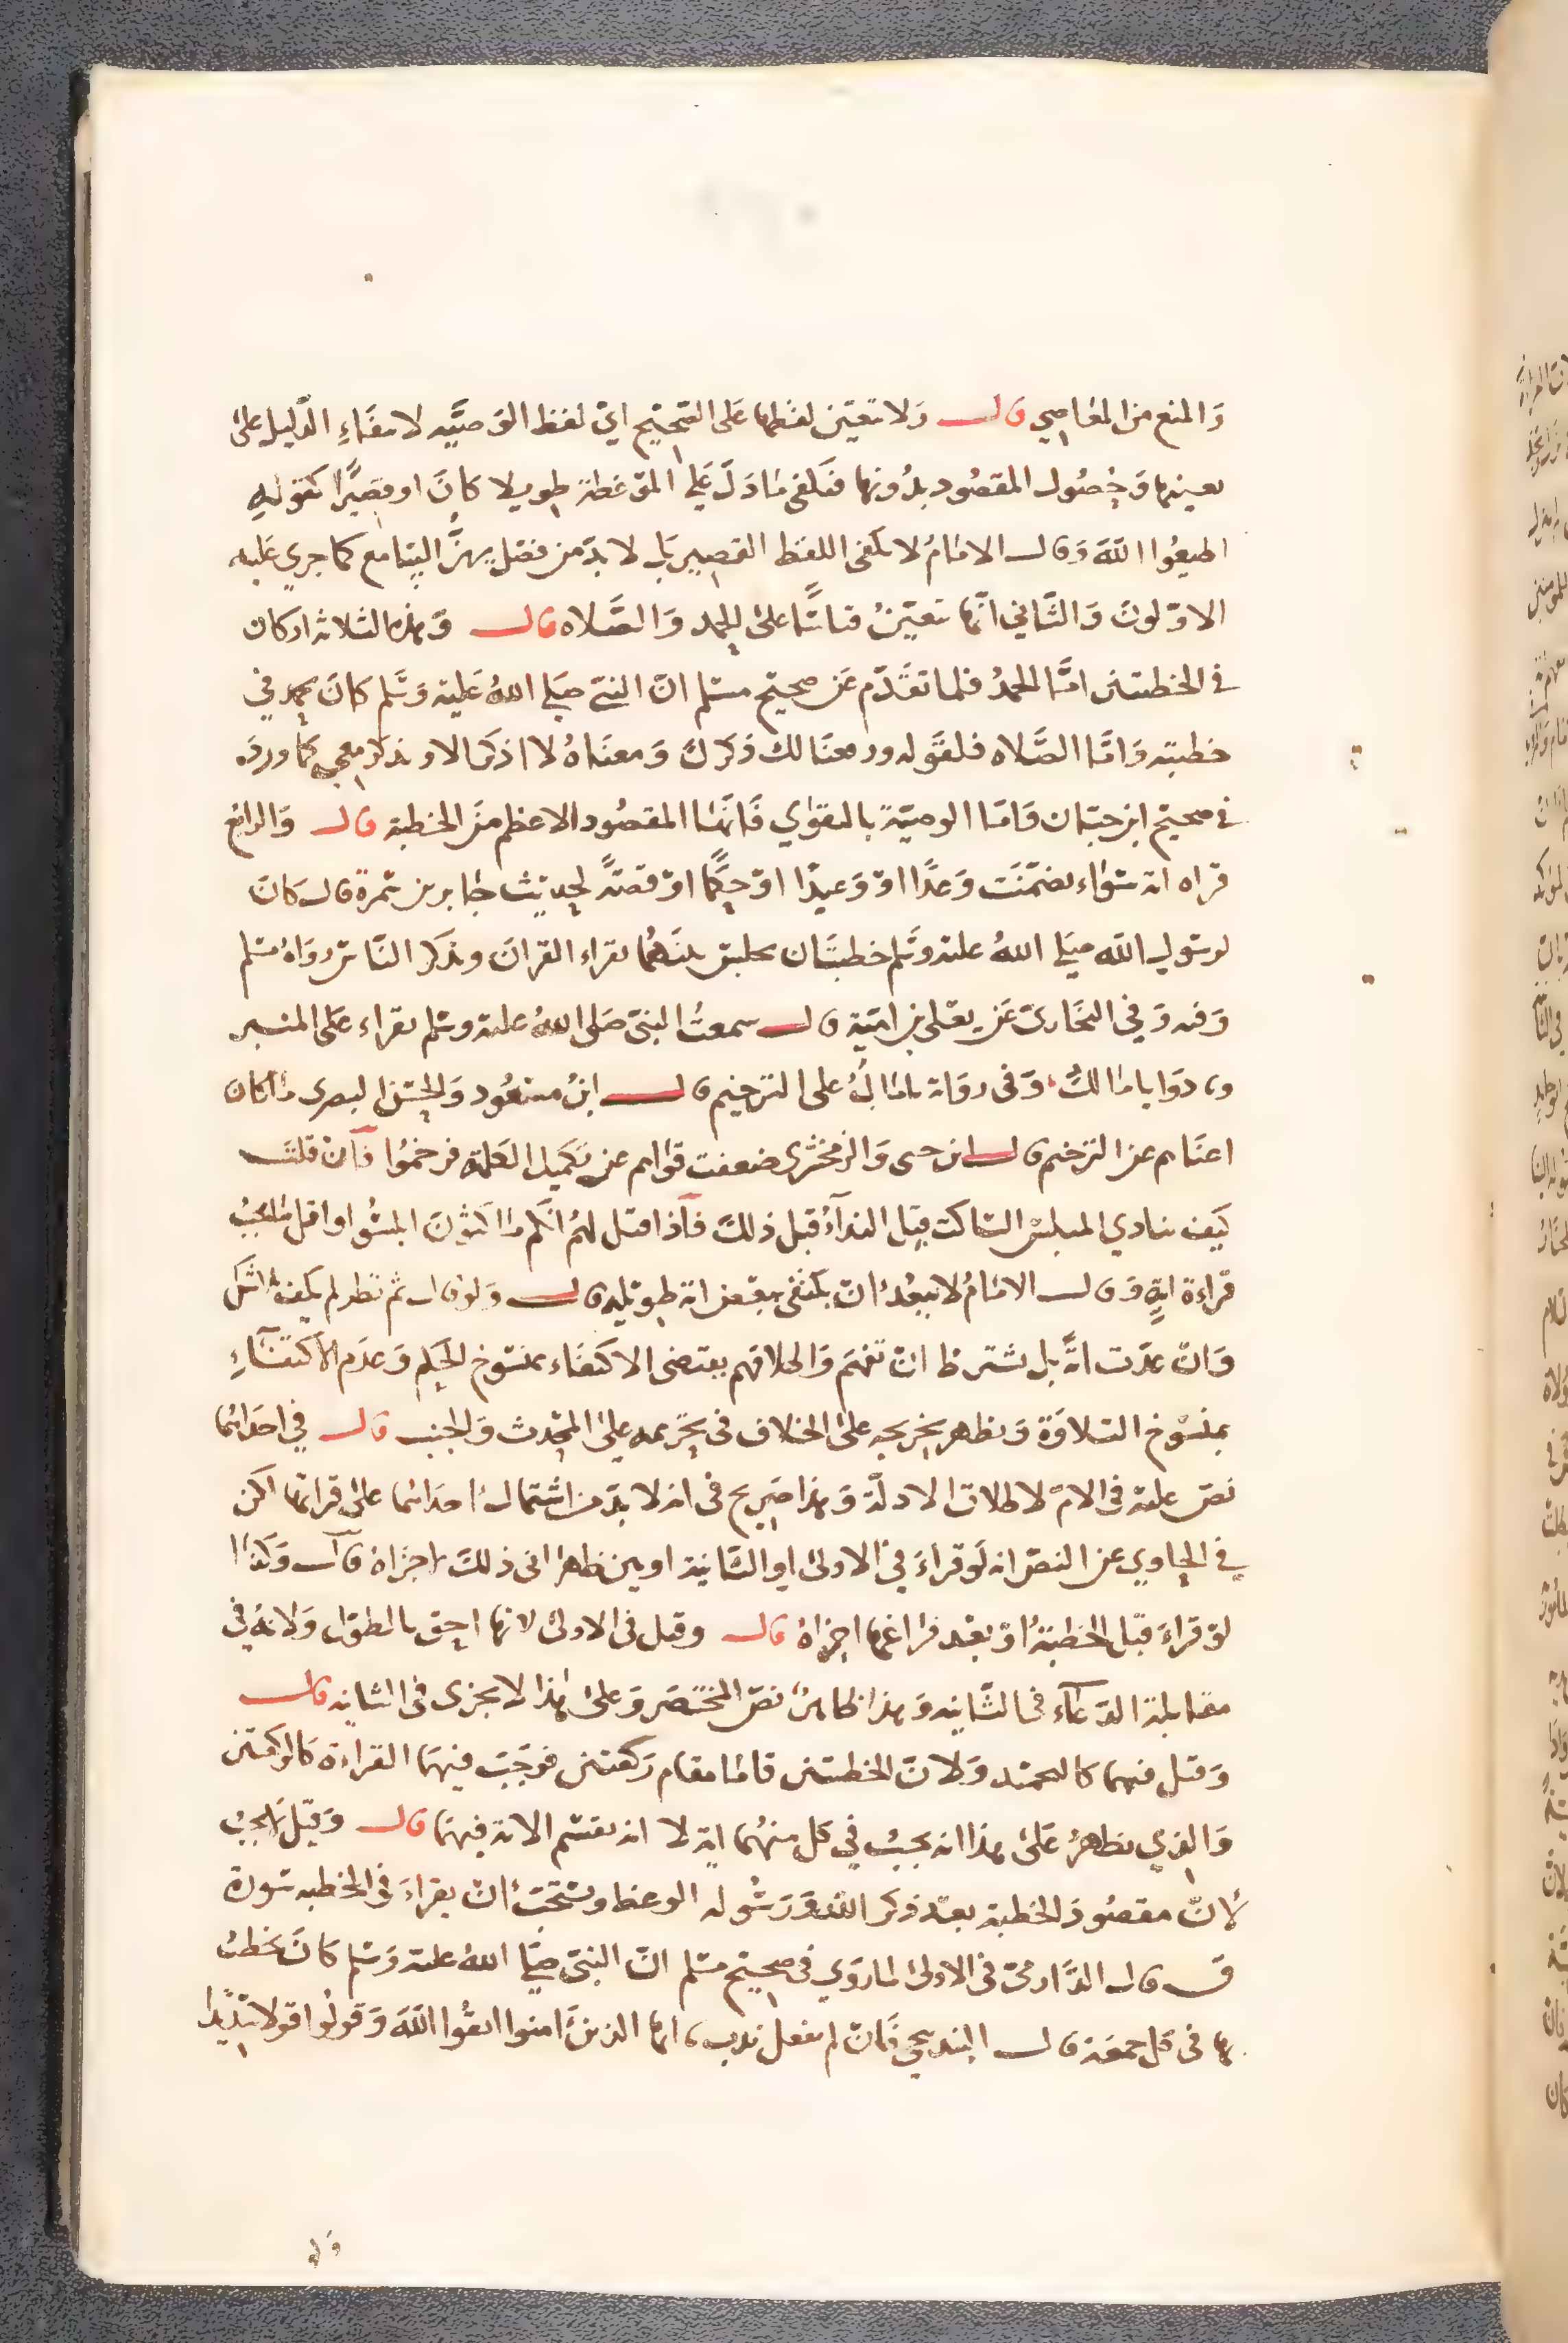 وَالمنع من المعاصي قال وَلا تتعيّن لفظها عَلى الصّحيح ايْ لفظ الوَصيَّه لانتفَاءِ الدّليل على
تعينها وَحُصُول المقصُود بدُونها فيَكفى مَا دَلَّ عَلى المَوْعظة طويلا كانَ او قصِيرًا كقوله
اطيعُوا اللّهَ وَقال الامَامُ لا يكفى اللفظ القصير بَل لا بدّ من فصْل يهزُّ السَّامع كما جري عَليه
الاوّلونَ وَالثَّاني انَّها تتعيّنُ قياسًا على الحمد وَالصَّلاه قال وَهذه الثلاثه اركان
في الخطبتين امَّا الحمدُ فلما تقدَّم عَن صحيح مسْلم انّ النبيّ صَلى اللهُ عَليه وَسَلم كانَ يحمد في
خطبته وَامَّا الصَّلاه فلقَوله ورفعنَا لك ذكرَك وَمعنَاهُ لا اذكَر الا وتذكر معِي كمَا وردَ
في صحيح ابن حبّان وَامَّا الوصيّة بالتقوٰي فَانّهَا المقصُود الاعظم منَ الخطبة قال وَالرابع
قراه ايه سَوَاء تضمّنَت وَعدًا اوْ وَعيدًا اوْ حُكمًا اوْ قصّةً لحديث جَابر بن سَمرة قال كانَ
لرسُول اللّه صَلى اللهُ عليه وسَلم خطبتَان يجلس بينَهُما يقراء القرانَ ويذكر النَّاسَ روَاهُ مسْلم
وَفيه وَفي البخَارى عَن يعْلى بن اميّة قال سمعتُ النبيّ صَلى اللهُ عليه وسلم يقراء عَلى المنبر
ونادَوا يا مَالكُ وَفى روَاية يا مَالُ على الترخيم قال ابنُ مسْعُود وَالحسَن البصرى مَا كان
اغنَاهم عن الترخيم قال ابن جنى وَالزمخشرى ضعفت قوَاهم عن تكميل الكلمة فرخمُوا فان قلتَ
كيَف ينادي المبلسُ السّاكت قيْل الندَاءُ قبل ذلكَ فاذا قيل لهُم انّكم مَاكثونَ ابلسُوا واقل مَا يجبُ
قرَاءة ايةٍ وَقال الامَامُ لا يبعُدُ انْ يكتفى ببَعض اية طويْله قال وَلوْ قال ثم نظر لم يكف
وَانْ عدّت ايةً بل يشترط انْ تفهمَ وَاطلاقهم يقتضى الاكتفَاء بمنسُوخ الحكِم وَعدَم الاكتفَاءِ
بمنسُوخ التلاوَة وَيظهر تخريجه على الخلاف فى تحريمه على المحدث وَالجنب قال في احدَاهُما
نصّ عليه فى الامّ لاطلاق الادلّة وَهذا صَريح فى انه لا بدّ من اشتمال احدَاهما على قراتها لكن
في الحاوي عن النصّ انه لَو قراءَ في الاولىٰ او الثّانية او بين ظهرانى ذلكَ اجزاهُ قال وَكذَا
لوْ قراءَ قبْل الخطبةُ اوْ بعْد فرَاغها اجزاهُ قال وقيل فى الاولىٰ لانها احق بالطوْل وَلانهُ في
مقابلة الدّعَاء فى الثَّانيه وَهذا ظاهرُ نصّ المختصَر وَعلىٰ هٰذا لا يجزى فى الثانيه قال
وَقيل فيهما كالحمد وَلانّ الخطبتين قامَا مقام رَكعتين فوجَبَ فيهمَا القراءة كالركعتين
وَالذي يظهرُ عَلىٰ هذا انه يجبُ في كل منهُما اية لا انه يقسم الاية فيهمَا قال وَقيْل لا يجبُ
لانّ مقصُودَ الخطبة بعْد ذكر اللهِ وَرَسُوله الوعظ ويستحَبّ انْ يقراءَ فى الخطبه سُورة
قَ قال الدَّارمىّ فى الاولىٰ لما روَي فى صحيح مسْلم انّ النبىّ صَلى اللهُ عليه وَسَلم كانَ يخطبُ
بها فى كل جمعَة قال البندنيجي فَانْ لم يفعل ندب يايها الذينَ امنوا اتقُوا اللّهَ وَقولوا قولا سَديْدا
وَلو